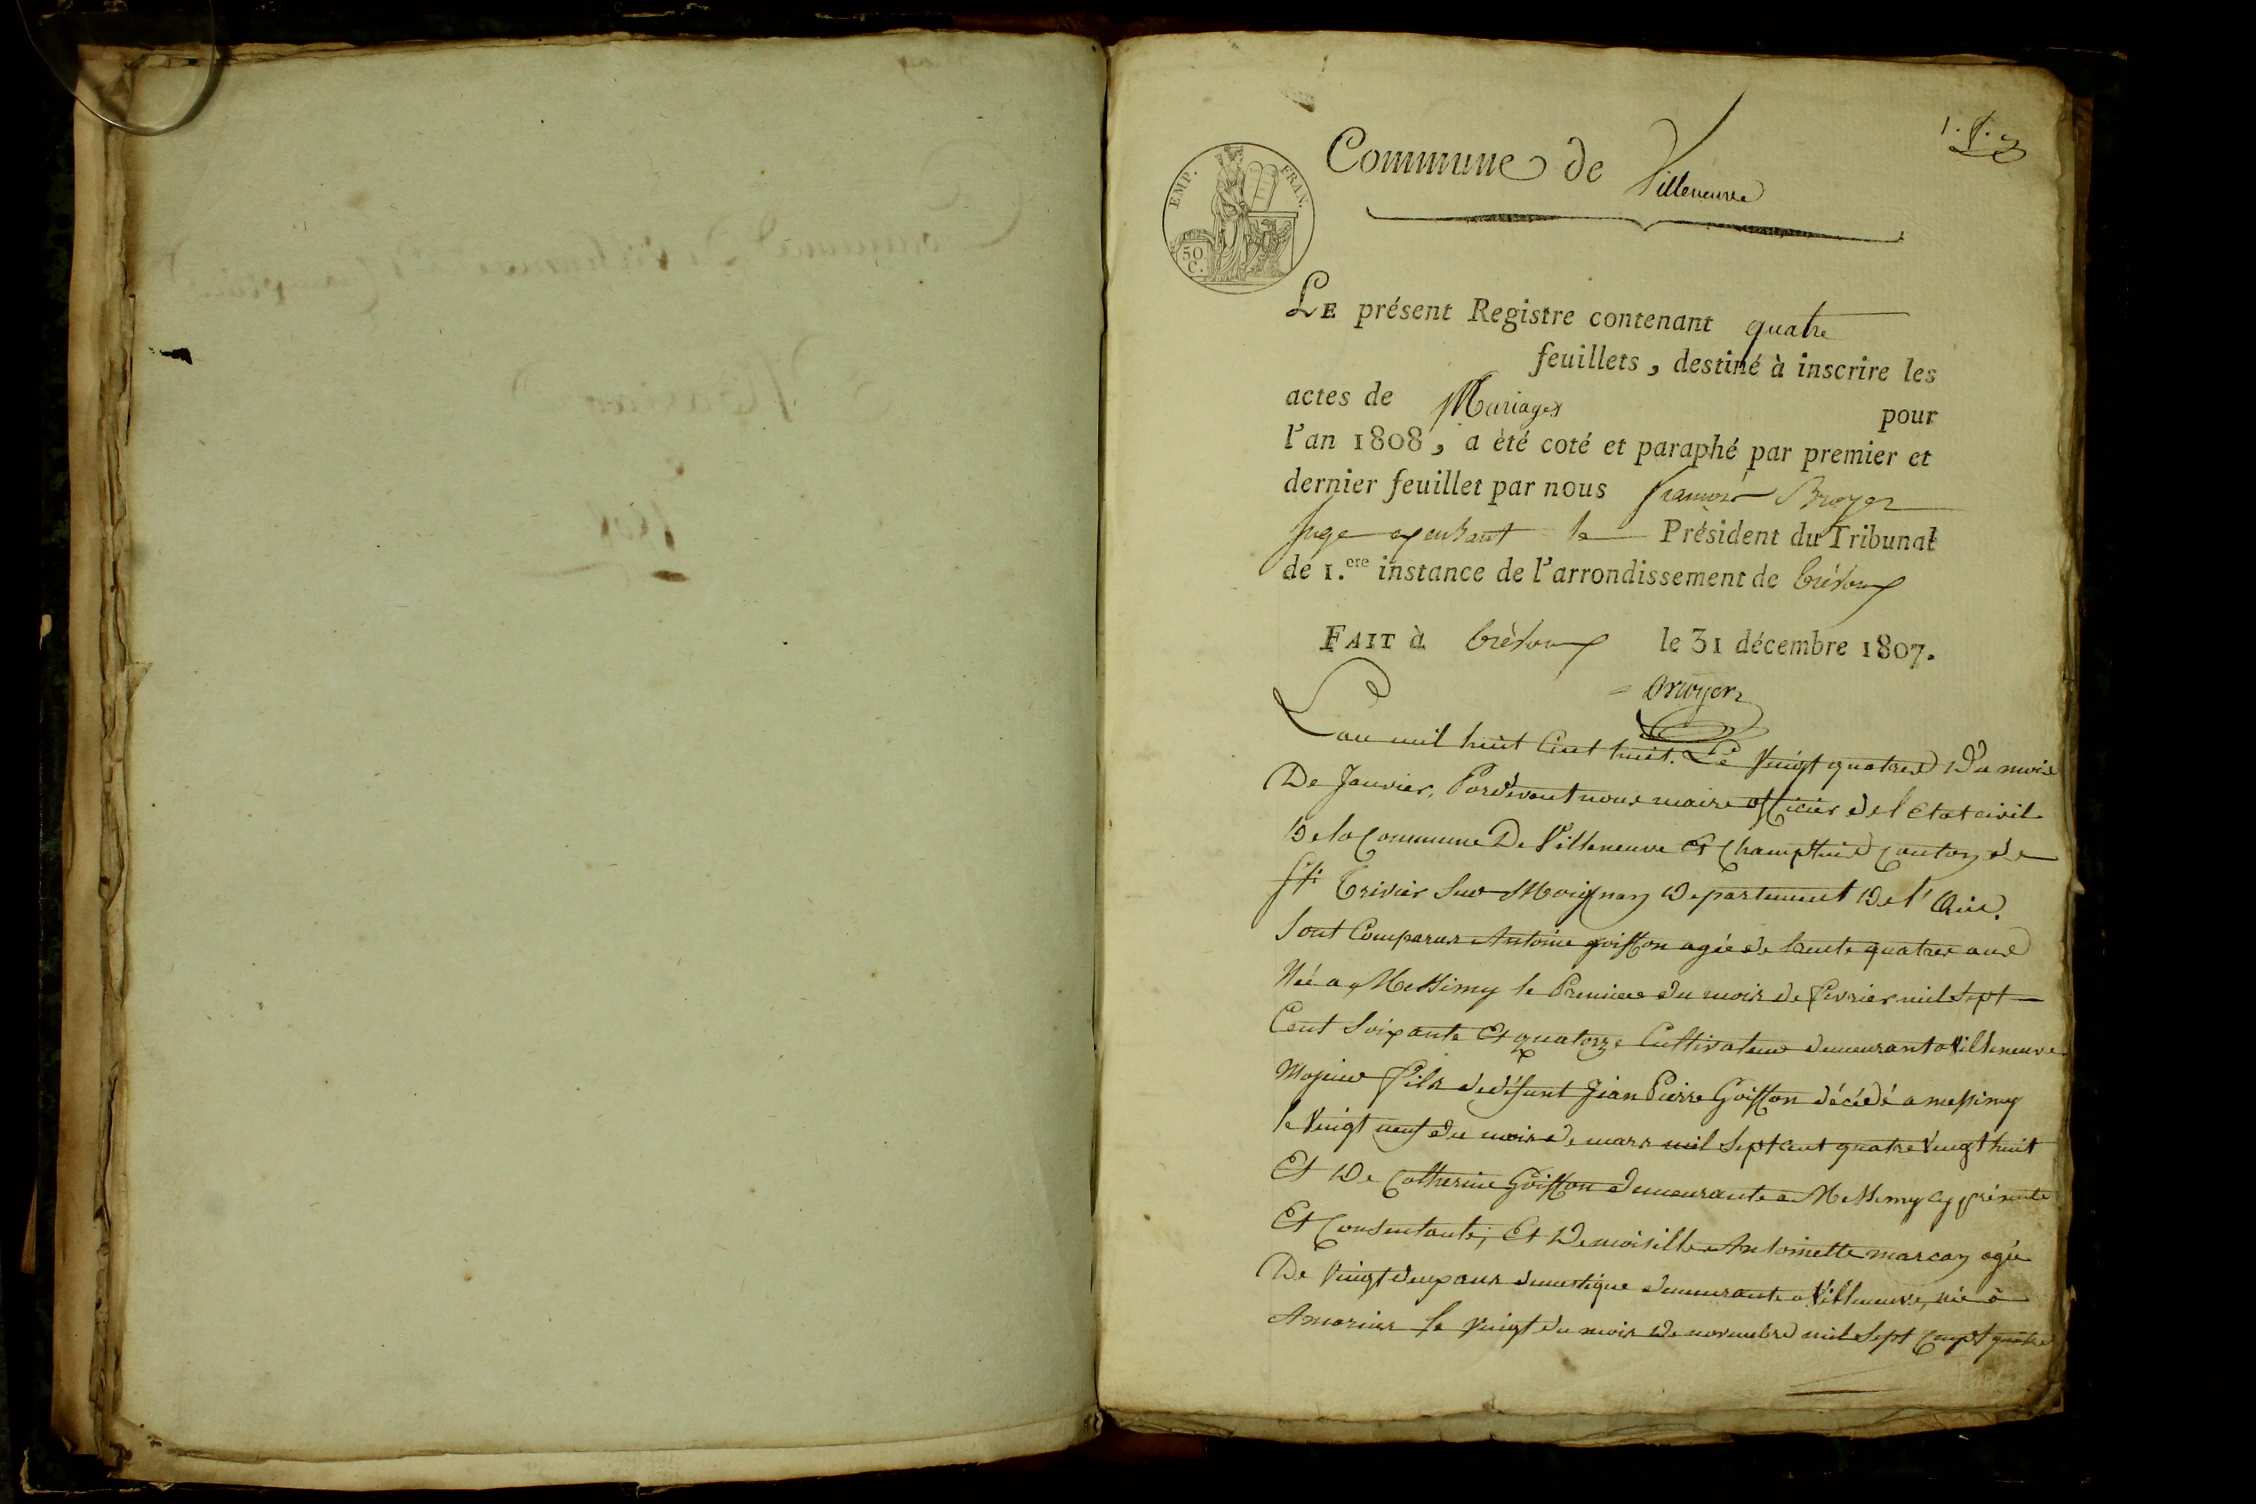 1.
Commune de Villeneuve
EMP. FRAN.
50 C.
LE présent Registre contenant quatre
feuillets, destiné à inscrire les
actes de Mariages pour
l'an 1808, a été coté et paraphé par premier et
dernier feuillet par nous françois Bruyer
Juge Président du Tribunal
de 1.ere instance de l'arrondissement de trévoux
FAIT à trévoux le 31 décembre 1807.
Bruyer
L'an mil huit Cent huit. Le Vingt quatre Du mois
De Janvier, Pardevant nous maire officier de l'état civil
De la Commune De Villeneuve et Champteind Canton de
St Trivier Sur Moignan Departement De l'Ain.
Sont Comparus Antoine goiffon agée de trente quatre ans
Née a Messimy le Premier du mois de fevrier mil Sept
Cent Soixante Et quatorze Cultivateur demeurant a Villeneuve
Majeur fils de défunt Jean Pierre Goiffon décédé a messimy
le Vingt neuf du mois de mars mil Sept cent quatre Vingt huit
Et De Catherine Goiffon demeurante a Messimy cy présente
Et Consentante; Et Demoiselle Antoinette marcon agée
De Vingt deux ans domestique demeurante a Villeneuve, née à
Amareins le Vingt du mois De novembre mil Sept Cent quatre